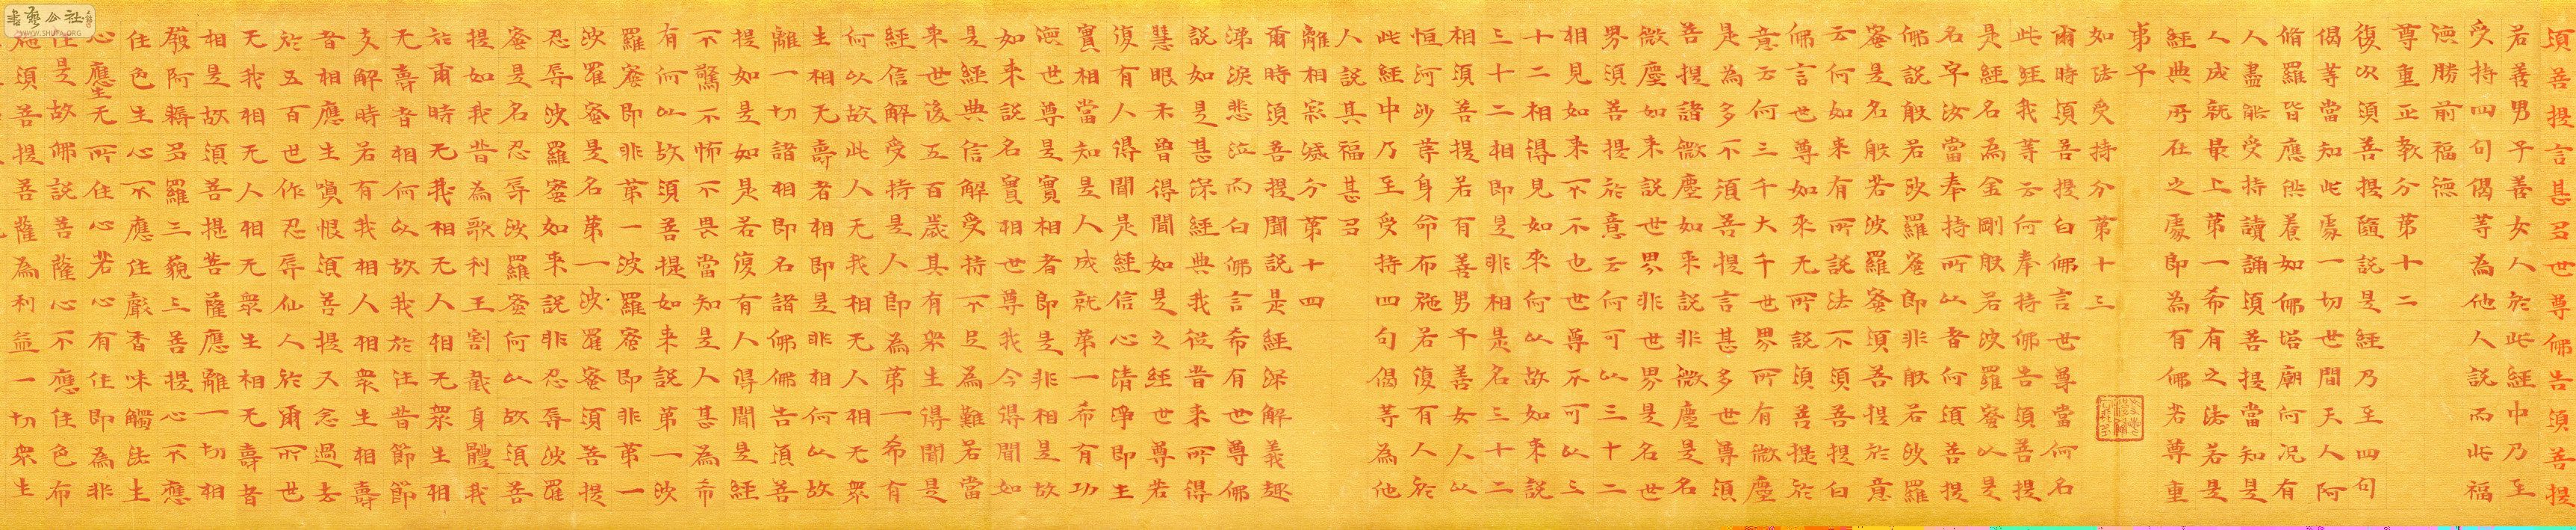 須菩提言甚多世尊佛告須菩提
若善男子善女人於此經中乃至
受持四句偈等為他人說而此福
德勝前福德
尊重正教分第十二
復次須菩提隨說是經乃至四句
偈等當知此處一切世間天人阿
脩羅皆應供養如佛塔廟何況有
人盡能受持讀誦須菩提當知是
人成就最上第一希有之法若是
經典所在之處即為有佛若尊重
弟子
如法受持分第十三
爾時須菩提白佛言世尊當何名
此經我等云何奉持佛告須菩提
是經名為金剛般若波羅蜜以是
名字汝當奉持所以者何須菩提
佛說般若波羅蜜即非般若波羅
蜜是名般若波羅蜜須菩提於意
云何如來有所說法不須菩提白
佛言世尊如來无所說須菩提於
意云何三千大千世界所有微塵
是為多不須菩提言甚多世尊須
菩提諸微塵如來說非微塵是名
微塵如來說世界非世界是名世
界須菩提於意云何可以三十二
相見如來不不也世尊不可以三
十二相得見如來何以故如來說
三十二相即是非相是名三十二
相須菩提若有善男子善女人以
恒河沙等身命布施若復有人於
此經中乃至受持四句偈等為他
人說其福甚多
離相寂滅分第十四
爾時須菩提聞說是經深解義趣
涕淚悲泣而白佛言希有世尊佛
說如是甚深經典我從昔來所得
慧眼未曾得聞如是之經世尊若
復有人得聞是經信心清淨即生
實相當知是人成就第一希有功
德世尊是實相者即是非相是故
如來說名實相世尊我今得聞如
是經典信解受持不足為難若當
來世後五百歲其有眾生得聞是
經信解受持是人即為第一希有
何以故此人无我相无人相无眾
生相无壽者相即是非相何以故
離一切諸相即名諸佛佛告須菩
提如是如是若復有人得聞是經
不驚不怖不畏當知是人甚為希
有何以故須菩提如來說第一波
羅蜜即非第一波羅蜜即非第一
波羅蜜是名第一波羅蜜須菩提
忍辱波羅蜜如來說非忍辱波羅
蜜是名忍辱波羅蜜何以故須菩
提如我昔為歌利王割截身體我
於爾時无我相无人相无眾生相
无壽者相何以故我於往昔節節
支解時若有我相人相眾生相壽
者相應生嗔恨須菩提又念過去
於五百世作忍辱仙人於爾所世
无我相无人相无眾生相无壽者
相是故須菩提菩薩應離一切相
發阿耨多羅三藐三菩提心不應
住色生心不應住聲香味觸法生
心應生无所住心若心有住即為非
住是故佛說菩薩心不應住色布
施須菩提菩薩為利益一切眾生
書藝公社
WWW.SHUFA.ORG